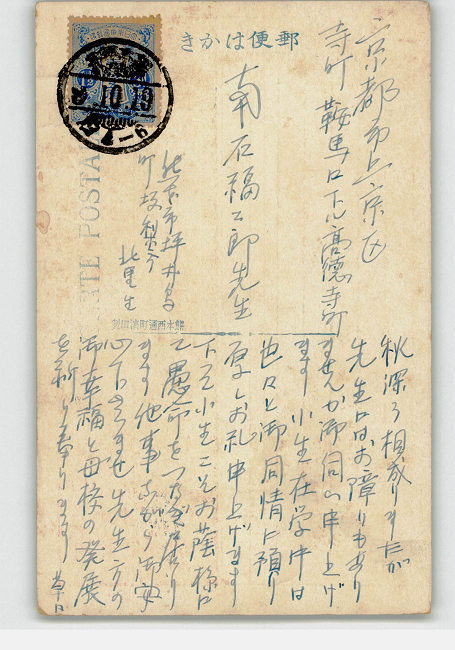 郵便はかき
京都市上京区
寺町鞍馬口下ル高徳寺町
南石福二郎先生
坪井
町
北里生
CARTE POSTA
10.19
熊本西通町濱田刻
秋深う相成りましたが
先生にはお障りもあり
ませんか御伺い申上げ
ます 小生在学中は
色々と御同情に預り
厚くお礼申上げます
下て小生こそお蔭様に
て愚命をつなぎ居り
ます 他事ながら御安
心下さいませ 先生方の
御幸福と母校の発展
を祈り奉ります